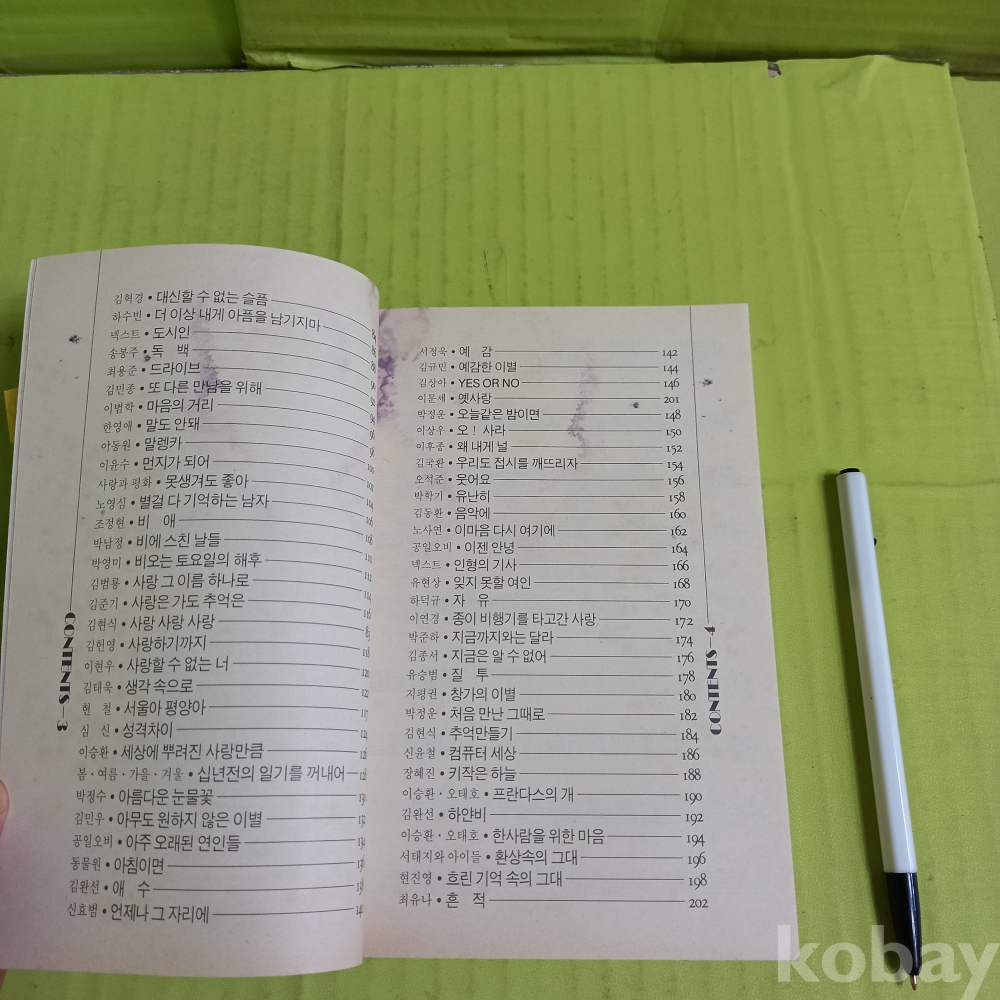 김혁경 • 대신할 수 없는 슬픔
하수빈 • 더 이상 내게 아픔을 남기지마
넥스트 • 도시인
송봉주 • 독 백
최용준 • 드라이브
김민종 • 또 다른 만남을 위해
이범학 • 마음의 거리
한영애 • 말도 안돼
야동원 • 말렝카
이윤수 • 먼지가 되어
사랑과 평화 • 못생겨도 좋아
노영심 • 별걸 다 기억하는 남자
조정현 • 비 애
박남정 • 비에 스친 날들
박영미 • 비오는 토요일의 해후
김범룡 • 사랑 그 이름 하나로
김준기 • 사랑은 가도 추억은
김현식 • 사랑 사랑 사랑
김헌영 • 사랑하기까지
이현우 • 사랑할 수 없는 너
김태욱 • 생각 속으로
현 철 • 서울아 평양아
심 신 • 성격차이
이승환 • 세상에 뿌려진 사랑만큼
봄 · 여름 · 가을 · 겨울 • 십년전의 일기를 꺼내어
박정수 • 아름다운 눈물꽃
김민우 • 아무도 원하지 않은 이별
공일오비 • 아주 오래된 연인들
동물원 • 아침이면
김완선 • 애 수
신효범 • 언제나 그 자리에
CONTENTS—3
서정욱 • 예 감 142
김규민 • 예감한 이별 144
김상아 • YES OR NO 146
이문세 • 옛사랑 201
박정운 • 오늘같은 밤이면 148
이상우 • 오! 사라 150
이후종 • 왜 내게 널 152
김국환 • 우리도 접시를 깨뜨리자 154
오석준 • 웃어요 156
박학기 • 유난히 158
김동환 • 음악에 160
노사연 • 이마음 다시 여기에 162
공일오비 • 이젠 안녕 164
넥스트 • 인형의 기사 166
유현상 • 잊지 못할 여인 168
하덕규 • 자 유 170
이연경 • 종이 비행기를 타고간 사랑 172
박준하 • 지금까지와는 달라 174
김종서 • 지금은 알 수 없어 176
유승범 • 질 투 178
지평권 • 창가의 이별 180
박정운 • 처음 만난 그때로 182
김현식 • 추억만들기 184
신윤철 • 컴퓨터 세상 186
장혜진 • 키작은 하늘 188
이승환 · 오태호 • 프란다스의 개 190
김완선 • 하얀비 192
이승환 · 오태호 • 한사람을 위한 마음 194
서태지와 아이들 • 환상속의 그대 196
현진영 • 흐린 기억 속의 그대 198
최유나 • 흔 적 202
CONTENTS—4
kobay